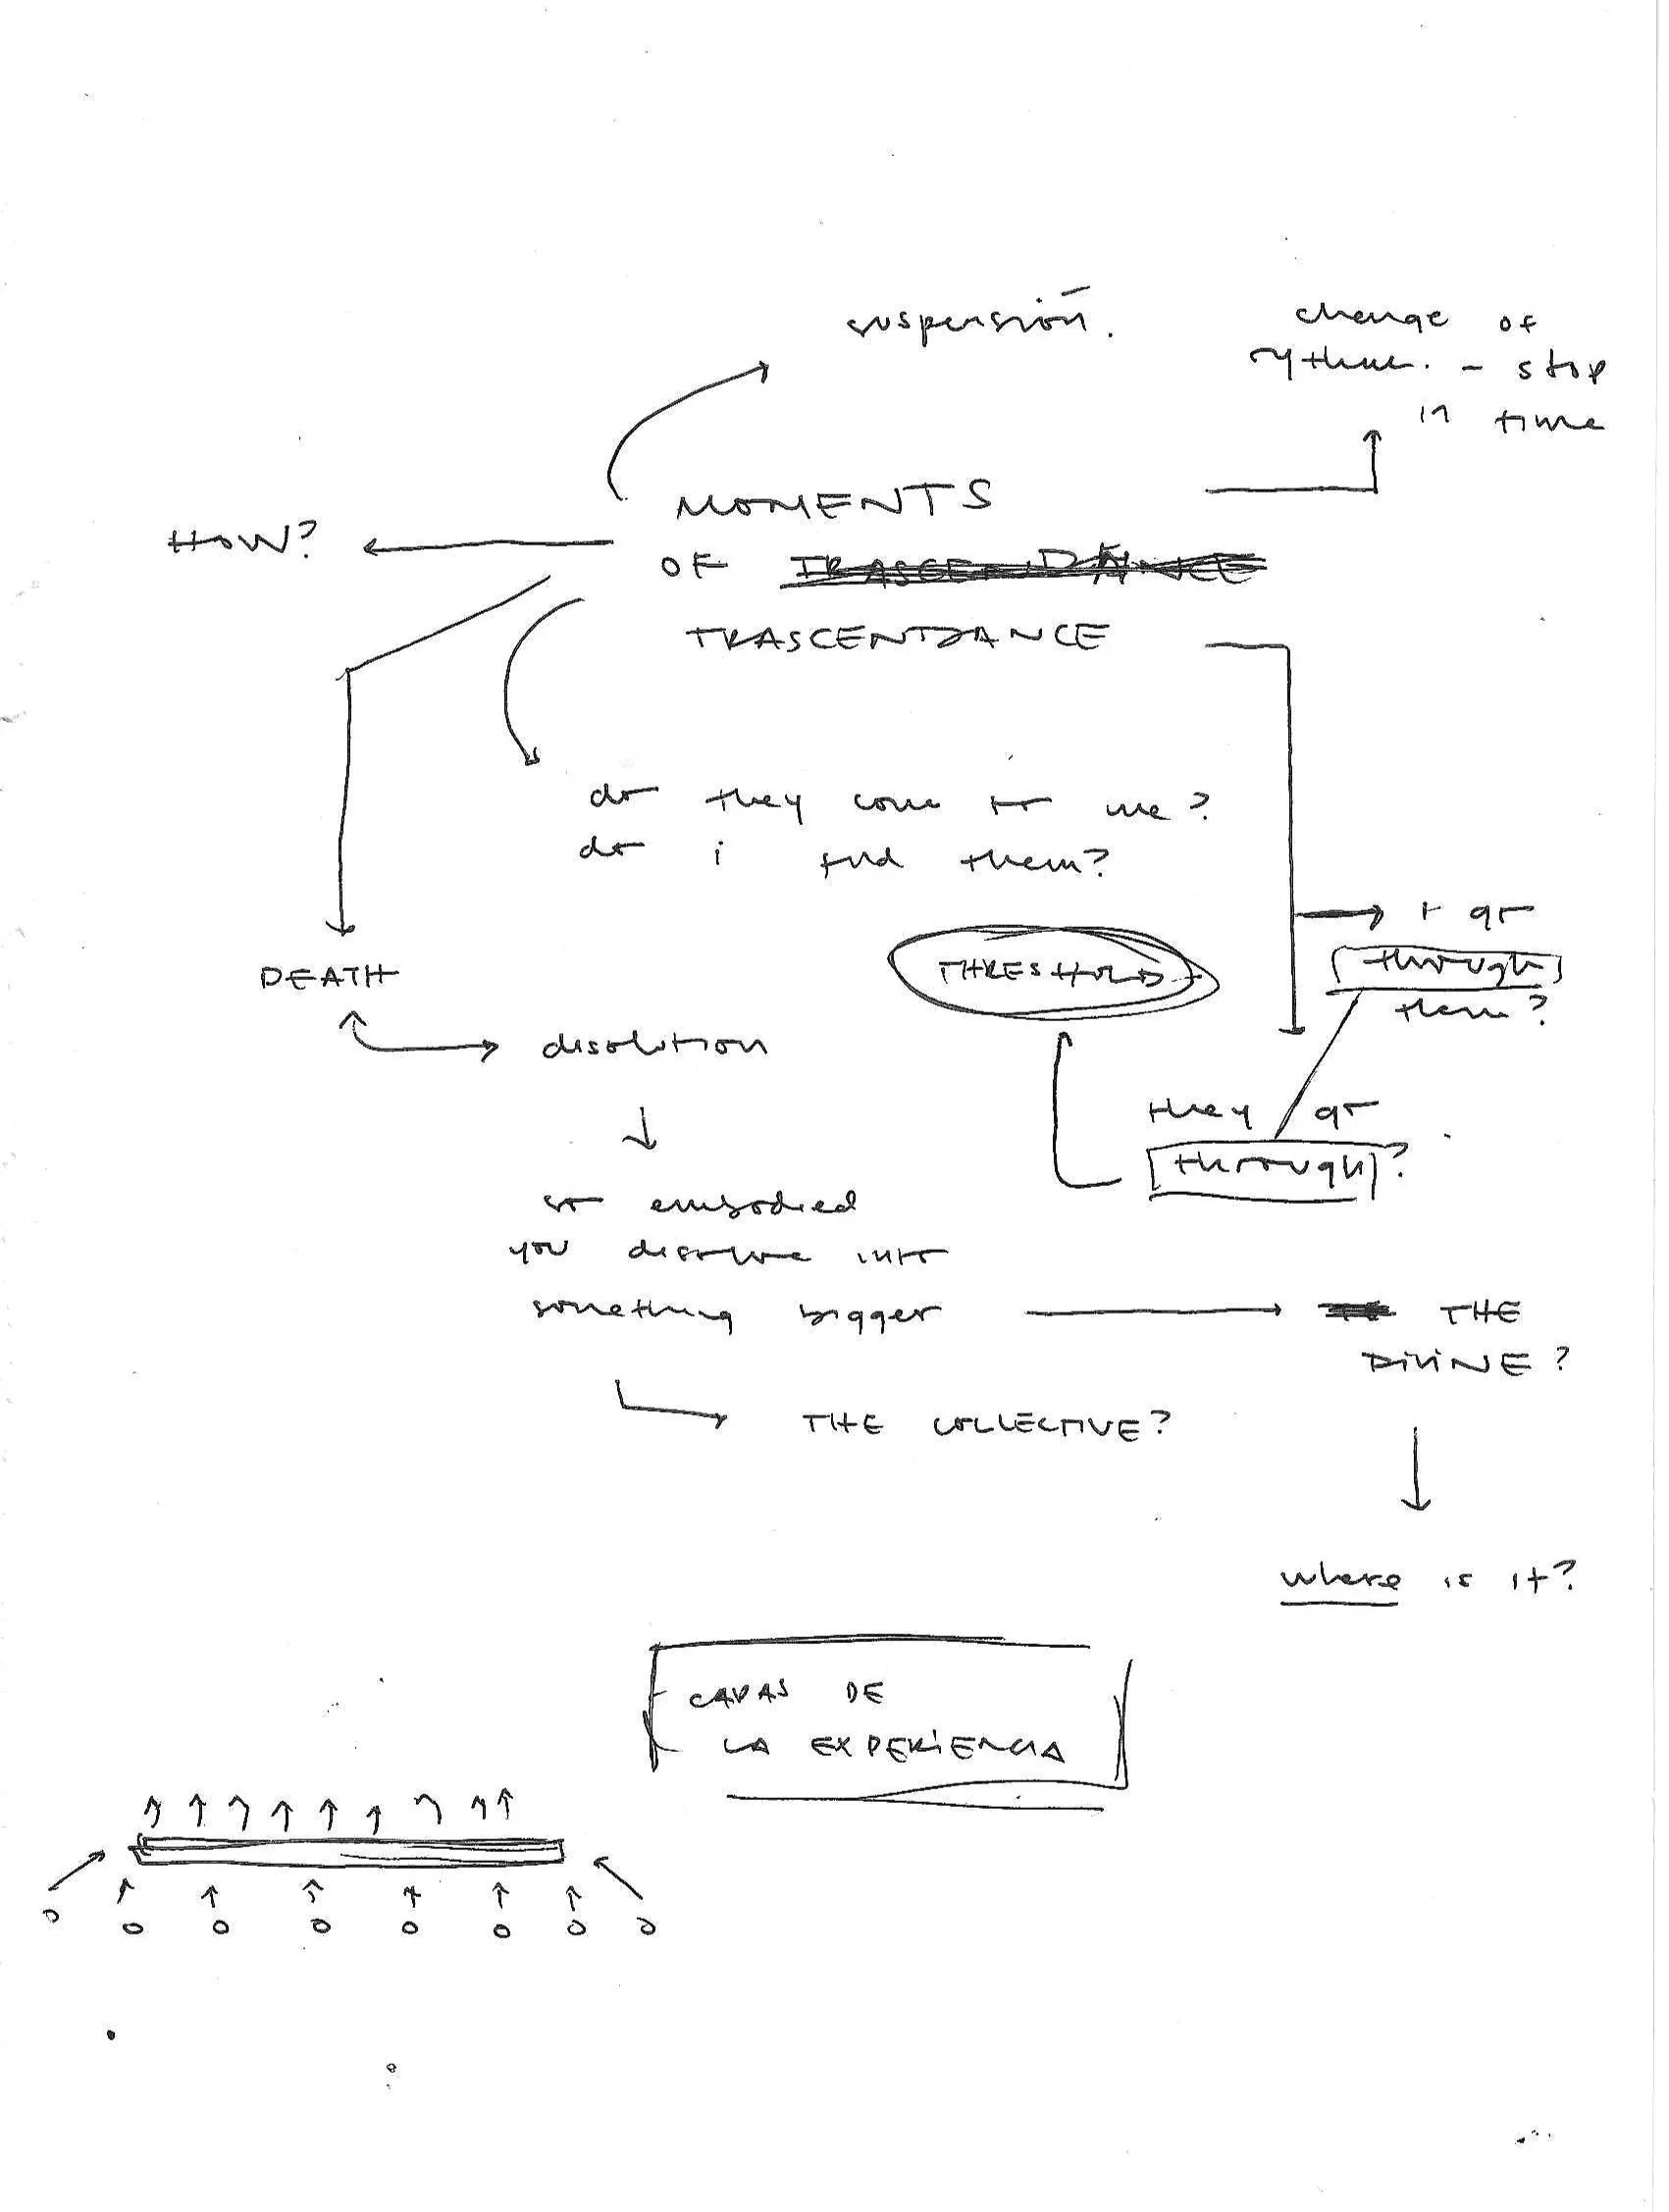 suspensión.
change of
rythm. - stop
in time
MOMENTS
HOW?
OF TRASCENDANCE
TRASCENDANCE
do they come to me?
do i find them?
I go
through
them?
THRESHOLD
DEATH
disolution
they go
through?
so embodied
you disolve into
something bigger
THE
DIVINE?
THE COLLECTIVE?
where is it?
CAPAS DE
LA EXPERIENCIA